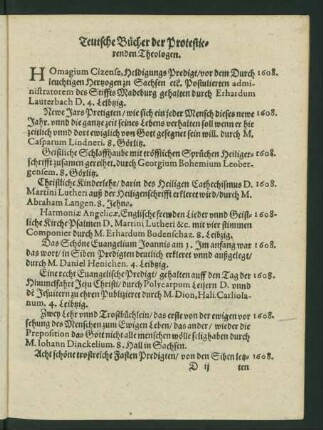 Teutsche Bücher der Protestie-
renden Theologen.
HOmagium Cizense, Heldigungs Predigt/ vor dem Durch 1608.
leuchtigen Hertzogen zu Sachsen etc. Postulierten admi-
nistratorem des Stiffts Madeburg gehalten durch Erhardum
Lauterbach D. 4. Leibtzig.
Newe Jars Predigten/ wie sich ein jeder Mensch dieses newe 1608.
Jahr. vnnd die gantze zeit seines Lebens verhalten soll wenn er hie
zeitlich vnnd dort ewiglich von Gott gesegnet sein will. durch M.
Casparum Lindneri. 8. Görlitz.
Geistliche Schlaffhaube mit tröfflichen Sprüchen Heiliger 1608.
schrifft zusamen gereihet, durch Georgium Bohemium Leober-
gensem. 8. Görlitz.
Christliche Kinderlehr/ darin des Heiligen Cathechismus D. 1608.
Martini Lutheri auß der Heiligenschrifft erkleret wird/ durch M.
Abraham Langen. 8. Jehna.
Harmoniæ Angelicæ, Englische frewden Lieder vnnd Geist- 1608.
liche Kirche Psalmen D, Martini Lutheri &c. mit vier stimmen
Componier durch M. Erhardum Bodenschatz. 8. Leibzig.
Das Schöne Euangelium Joannis am 1. Im anfang war 1608.
das wort/ in Siben Predigten deutlich erkleret vnnd außgelegt/
durch M. Daniel Henichen. 4. Leibtzig.
Eine recht Euangelische Predigt/ gehalten auff den Tag der 1608.
Himmelfahrt Jesu Christi/ durch Polycarpum Leisern D. vnnd
de Jesuitern zu ehren Publizieret durch M. Dion, Hali. Carliola-
num. 4. Leibzig.
Zwey Lehr vnnd Trostbüchlein/ das erste von der ewigen vor 1608.
sehung des Menschen zum Ewigen Leben/ das ander/ wieder die
Preposition das Gott nicht alle menschen wölle selig haben durch
M. Iohann Dinckelium. 8. Hall in Sachsen.
Acht schöne trostreiche Fasten Predigten/ von den Siben letz- 1608.
D ij ten